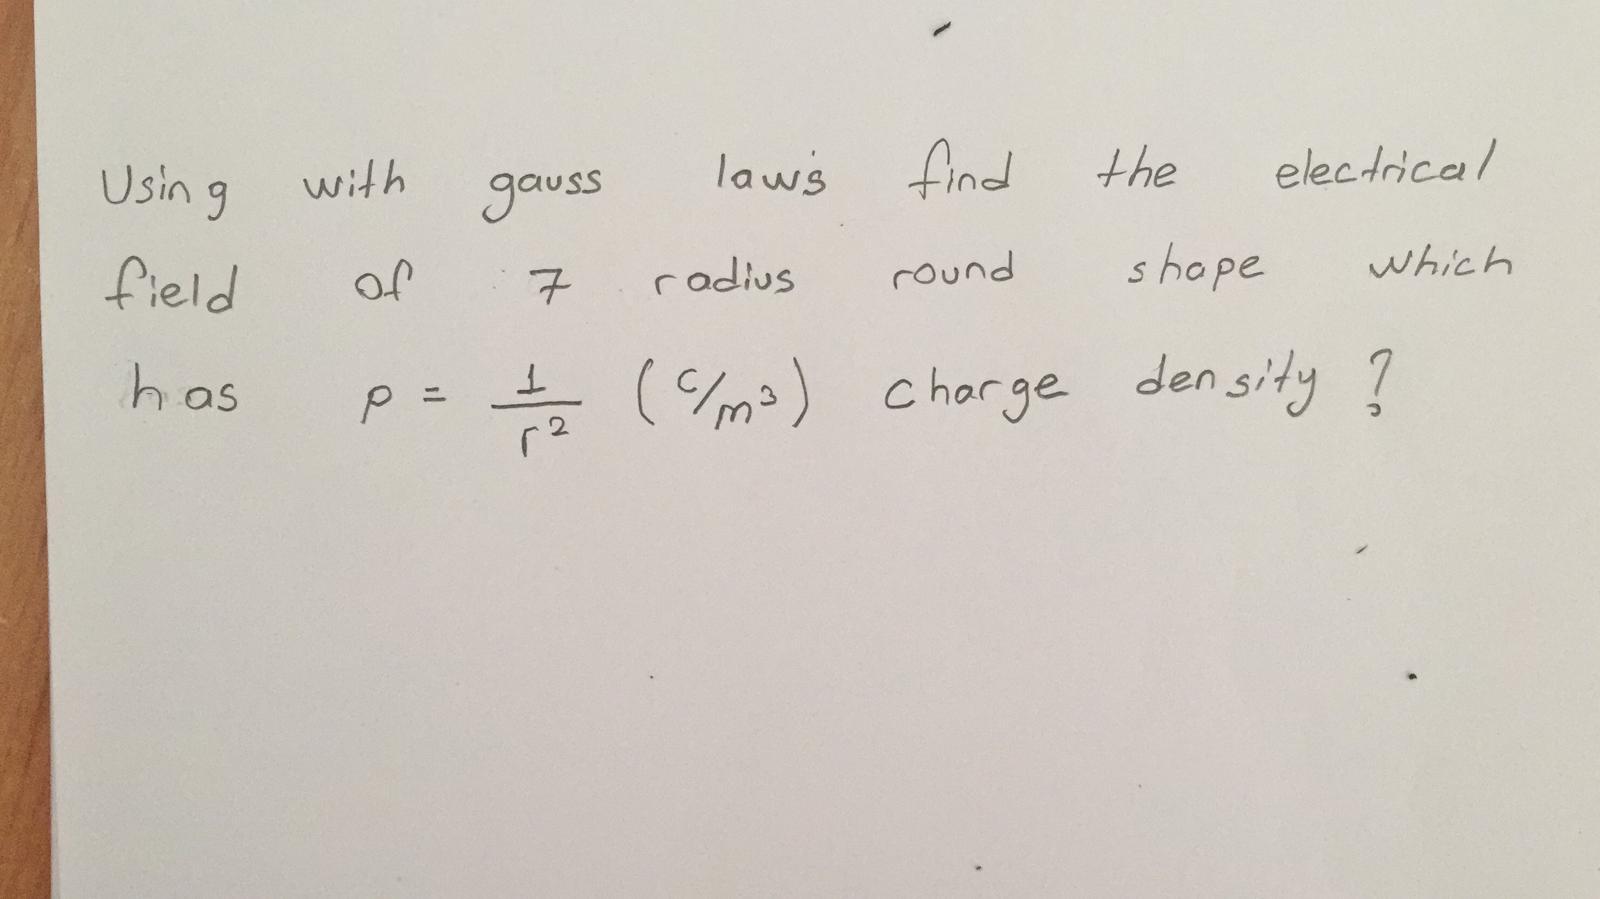 Using with gauss law's find the electrical
field of 7 radius round shape which
has ρ = 1/r² (C/m³) charge density ?